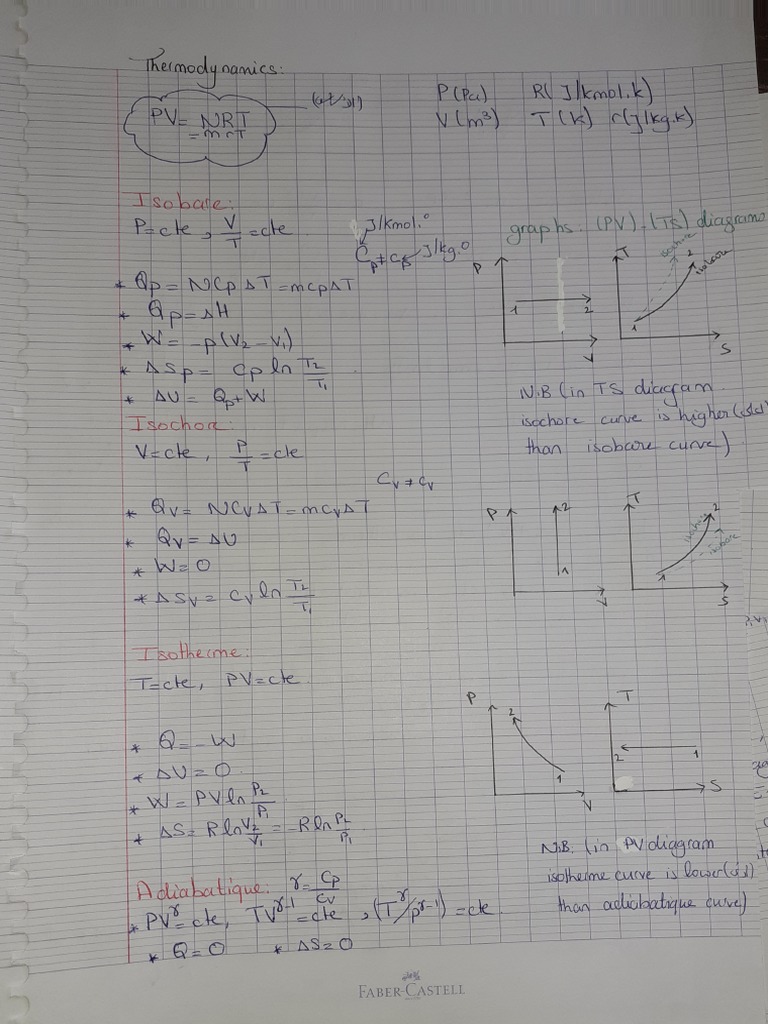 Thermodynamics:
PV = NRT
= m r T
P(Pa) R(J/kmol.k)
V(m³) T(k) r(J/kg.k)
Isobare:
P=cte, V/T = cte
J/kmol.°
Cp ≠ cp J/kg.°
* Qp = NCpΔT = mcpΔT
* Qp = ΔH
* W = -p(V2 - V1)
* ΔSp = Cp ln T2/T1
* ΔU = Qp + W
graphs: (PV) - (TS) diagrams
P
1
2
V
T
isochore
2
isobare
1
S
N.B (in TS diagram
isochore curve is higher
than isobare curve)
Isochore:
V=cte, P/T = cte
Cv ≠ cv
* Qv = NCvΔT = mcvΔT
* Qv = ΔU
* W = 0
* ΔSv = Cv ln T2/T1
P
2
1
V
T
2
isochore
isobare
1
S
Isotherme:
T=cte, PV=cte
* Q = -W
* ΔU = 0
* W = PV ln P2/P1
* ΔS = R ln V2/V1 = -R ln P2/P1
P
2
1
V
T
2
1
S
N.B. (in PV diagram
isotherme curve is lower
than adiabatique curve)
Adiabatique: γ = Cp/Cv
* PV^γ = cte, TV^γ-1 = cte, (T^γ/P^γ-1) = cte
* Q = 0 * ΔS = 0
FABER-CASTELL